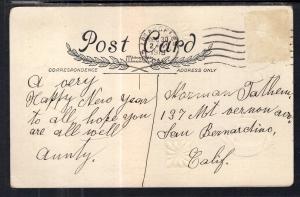 Post Card
CORRESPONDENCE
ADDRESS ONLY
A very
Happy New Year
to all hope you
are all well
Aunty.
Norman Tathem
137 Mt vernon ave
San Bernardino,
Calif.